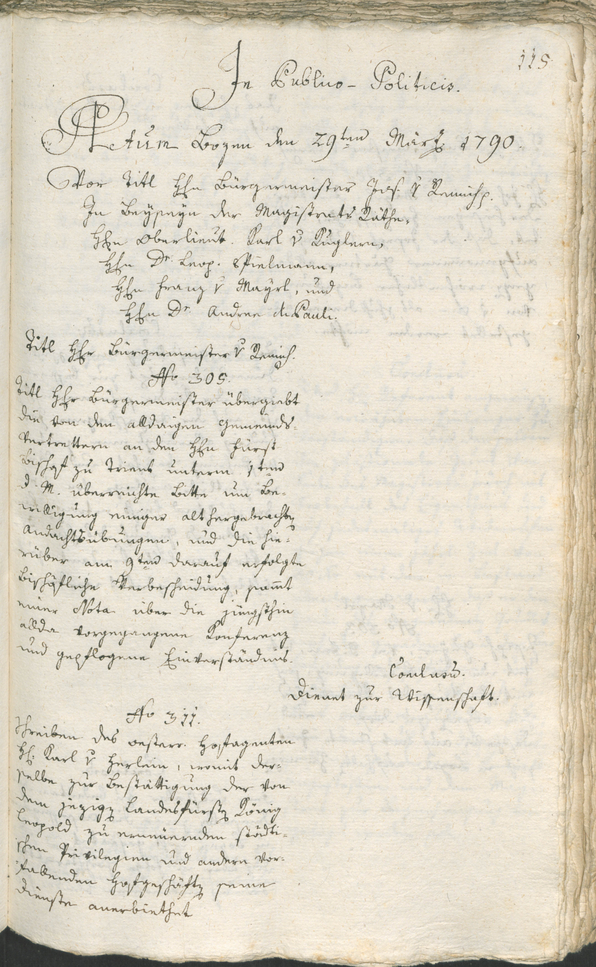 115
In Publico-Politicis.
Actum Bozen den 29ten März 1790.
Vor Titl Hhn Bürgermeister Jos. v Remich.
In Beyseyn der Magistrats Räthe,
Hhn Oberlieut. Karl v Kuglern,
Hhn Dr Leop. Spielmann,
Hhn Franz v Mayrl, und
Hhn Dr Andree di Pauli.
Titl Hhr Bürgermeister v Remich.
No 305.
Titl Hhr Bürgermeister übergiebt
die von den alldaigen Gemeinds-
vertrettern an den Hhn Fürst
Bischof zu Trient unterm 1ten
d. M. überreichte Bitte um Be-
willigung einiger althergebrachten
Andachtsübungen, und die hie-
rüber am 9ten darauf erfolgte
Bischöfliche Verbescheidung, sammt
einer Nota über die jüngsthin
allda vorgegangene Konferenz
und gepflogene Einverständnis.
Conclusum.
Dienet zur Wissenschaft.
No 311.
Schreiben des oesterr. Hofagenten
Hh. Karl v Herlein, womit der-
selbe zur Bestättigung der von
dem jezigen Landesfürsten König
Leopold zu erneuernden städti-
schen Privilegien und andern vor-
habenden Hofgeschäften seine
Dienste anerbiethet